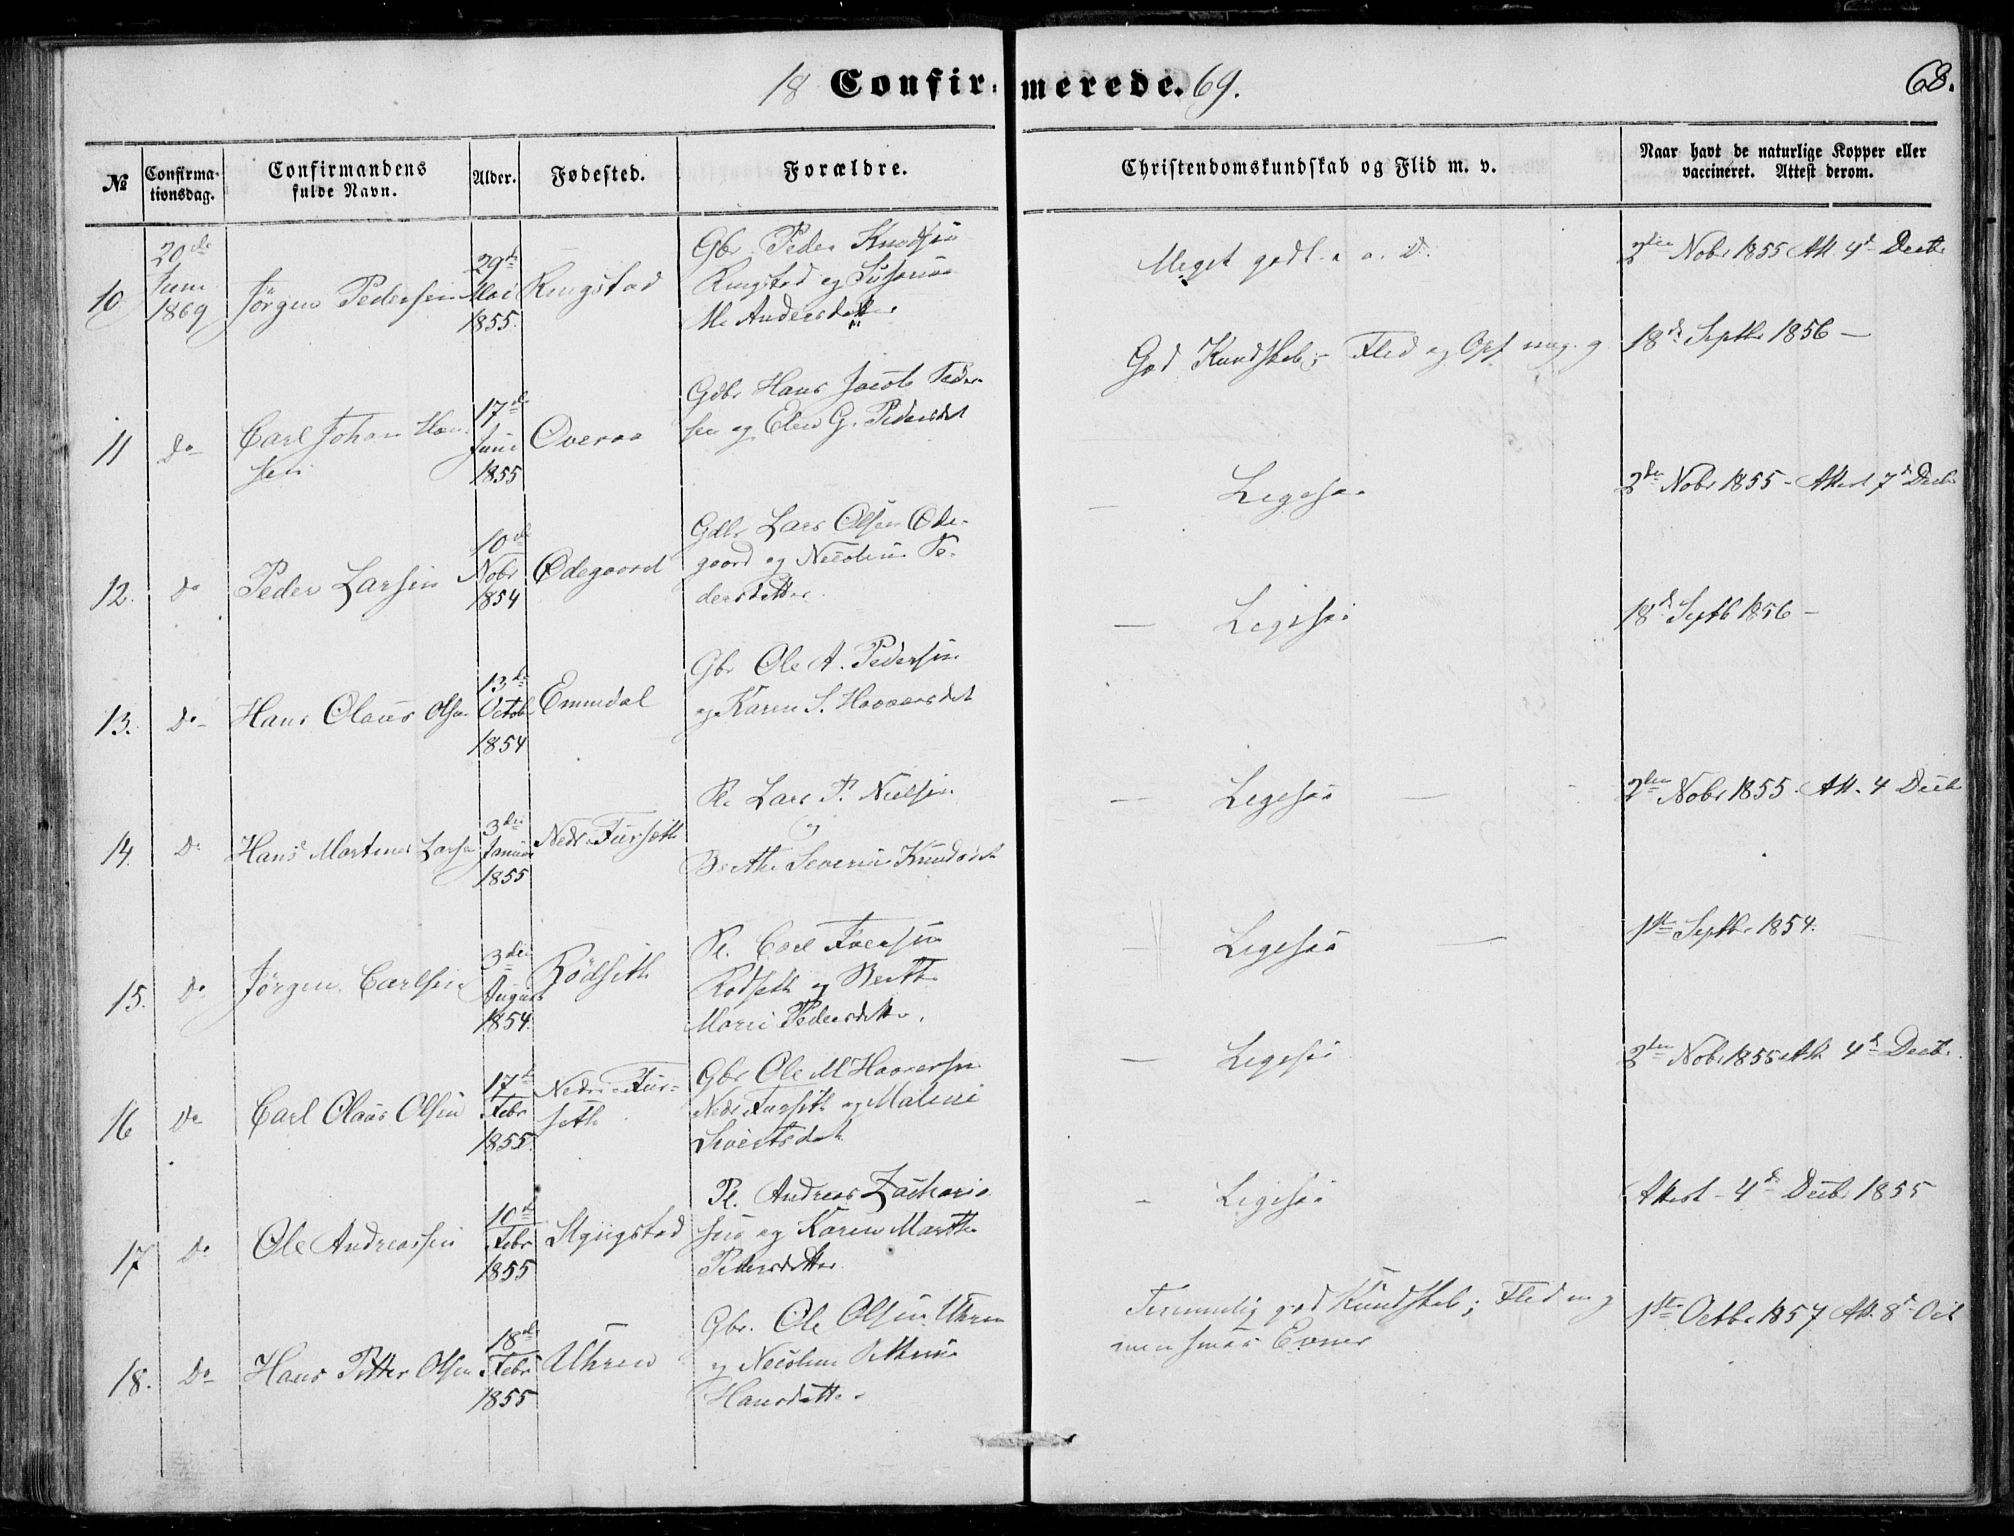 18 Confirmerede. 69.
68.
№
Confirmationsdag.
Confirmandens fulde Navn.
Alder.
Fødested.
Forældre.
Christendomskundskab og Flid m. v.
Naar havt de naturlige Kopper eller vaccineret. Attest derom.
10.
20de
Juni
1869
Jörgen Pedersen
29de
Mai
1855.
Ringstad
Gbr Peder Knudsen
Ringstad og Susanna
M. Andersdatter
Meget godt.
2den Nobr 1855 Att. 4de Decbr
11
Do
Carl Johan Han-
sen
17de
Juni
1855
Overaa
Gdbr Hans Jacob Peder-
sen og Elen G. Pedersdat
God Kundskab; Flid og Opf. meg. g.
18de Septbr 1856 —
12.
Do
Peder Larsen
10de
Nobr
1854
Ødegaard
Gdbr Lars Olsen Øde-
gaard og Nicoline Pe-
dersdatter
— Ligesaa
2den Nobr 1855 - Attest 7de Decbr
13.
Do
Hans Olaus Olsen
13de
Octobr
1854
Emmdal
Gbr Ole A. Pedersen
og Karen S. Haavarsdat
— Ligesaa
18de Septb 1856 —
14.
Do
Hans Martinus Larsen
3die
Januar
1855
Nedr. Furseth
Pl. Lars P. Nielsen
og
Berthe Severine Knudsdat
— Ligesaa —
2den Nobr 1855. Att. 4 Decbr
15.
Do
Jörgen Carlsen
3die
August
1854.
Rödseth
Pl. Carl Iversen
Rodseth og Berthe
Marie Pedersdatter.
— Ligesaa —
1ste Septbr 1854.
16
Do
Carl Olaus Olsen
17de
Febr
1855.
Nedre Fur-
seth
Gbr Ole M Haaversen
Nedr Furseth og Malene
Sivertsdatr
— Ligesaa
2den Nobr 1855 Att 4de Decbr.
17
Do
Ole Andreassen
10de
Febr
1855
Pl. Andreas Zacharia-
sen og Karen Marthe
Pedersdatter
- Ligesaa
Attest - 4de Decbr 1855
18.
Do
Hans Petter Olsen
18de
Febr
1855
Uthren
Gbr. Ole Olsen Uthren
og Nicoline Pethrine
Hansdatter
Temmelig god Kundskab; Flid m g
men smaa Evner
1ste Octbr 1857 Att. 8de Oct